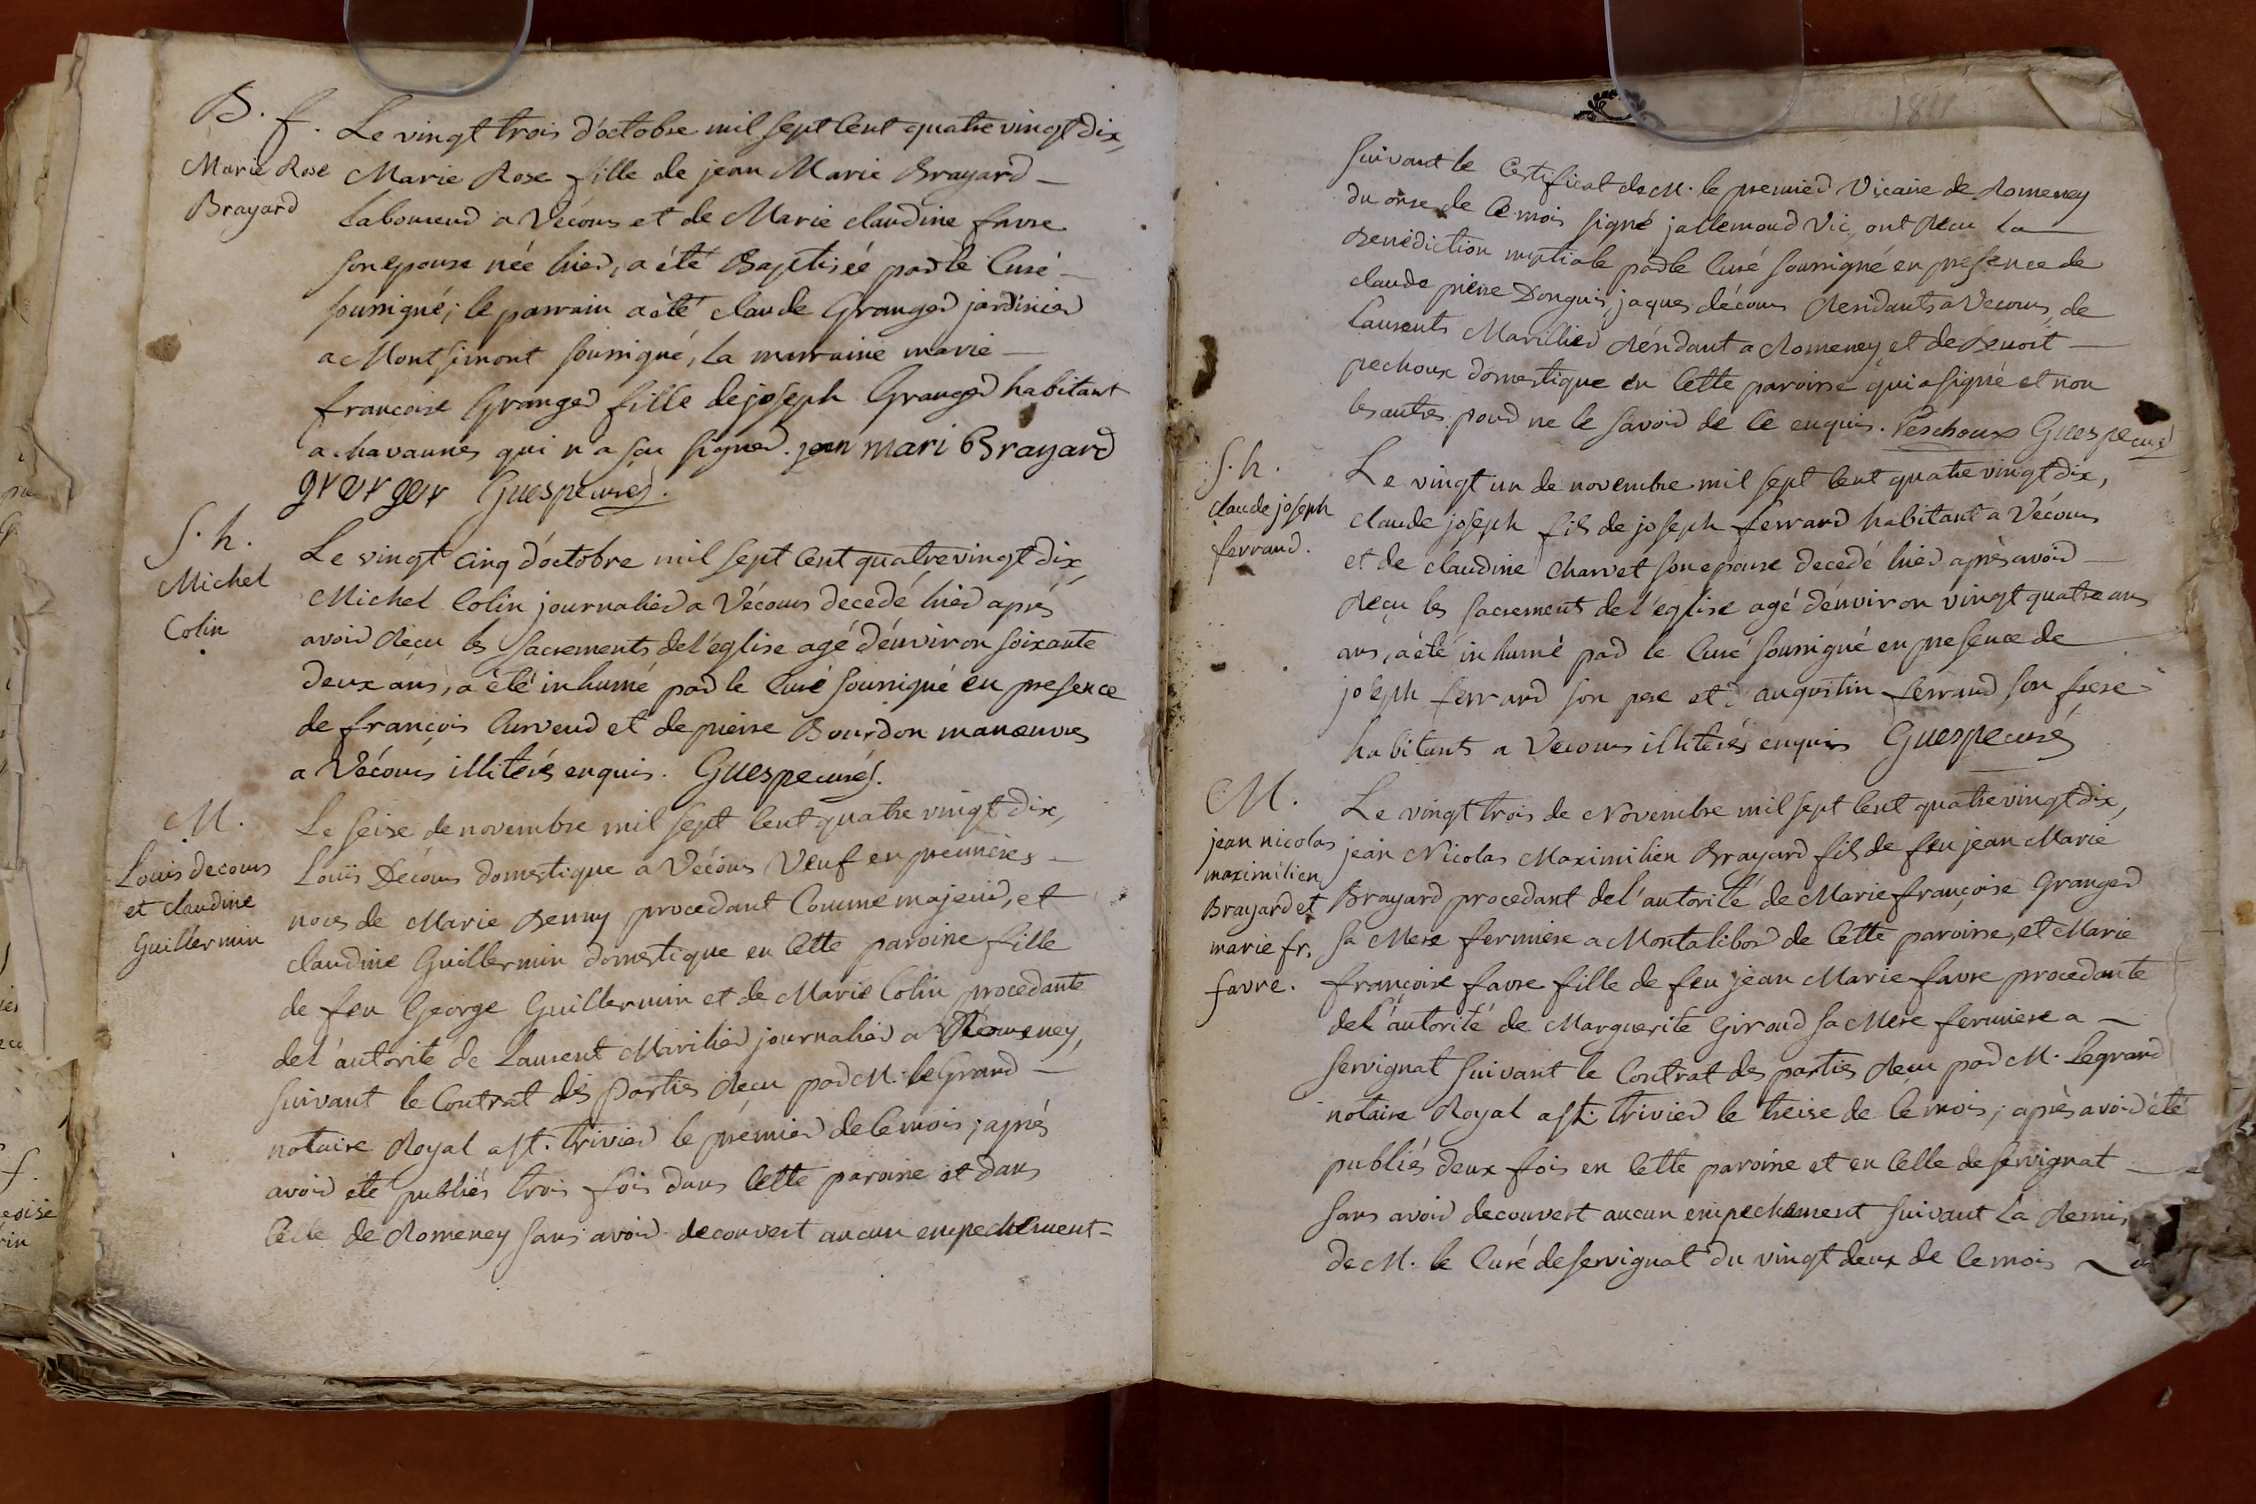 B. f.
Marie Rose
Brayard
Le vingt trois d'octobre mil sept cent quatre vingt dix,
Marie Rose fille de jean Marie Brayard
laboureur a Vécours et de Marie claudine favre
son epouse née hier, a été Baptisée par le Curé
soussigné; le parrain a été claude Granger jardinier
a Montsimont soussigné, la marraine marie
francoise Granger fille de joseph Granger habitant
a chavannes qui n'a su signer. jean mari Brayard
granger Guespe curé.
S. h.
Michel
Colin
Le vingt cinq d'octobre mil sept cent quatre vingt dix,
Michel Colin journalier a Vécours decedé hier après
avoir reçu les sacrements de l'eglise agé d'environ soixante
deux ans, a été inhumé par le Curé soussigné en presence
de françois Curveur et de pierre Bourdon manœuvres
a Vécours illiterés enquis. Guespe curé.
M.
Louis decours
et claudine
Guillermin
Le seise de novembre mil sept cent quatre vingt dix,
Louis Décours domestique a Vécours Veuf en premieres
noces de Marie Benny procedant Comme majeur, et
claudine Guillermin domestique en cette paroisse fille
de feu George Guillermin et de Marie Colin procedante
de l'autorite de Laurent Marilier journalier a Romeney,
suivant le Contrat des parties reçu par M. le Grand
notaire Royal a St. trivier le premier de ce mois; après
avoir été publiés trois fois dans cette paroisse et dans
celle de Romeney sans avoir decouvert aucun empechement
suivant le Certificat de M. le premier Vicaire de Romeney
du onse de ce mois signé jallemoud Vic, ont reçu la
Benediction nuptiale par le Curé soussigné en presence de
claude pierre Donguis, jaques décours residants a Vecours, de
Laurents Marilier résidant a Romeney et de Benoit
pechoux domestique en cette paroisse qui a signé et non
les autres pour ne le savoir de ce enquis. Peschoux Guespe curé
S. h.
claude joseph
ferrand.
Le vingt un de novembre mil sept cent quatre vingt dix,
claude joseph fils de joseph ferrand habitant a Vécours
et de claudine Charvet son epouse decedé hier après avoir
reçu les sacrements de l'eglise agé d'environ vingt quatre ans
ans, a été inhumé par le Curé soussigné en presence de
joseph ferrand son pere et d'augustin ferrand son frere
habitants a Vecours illiterés enquis Guespe curé
M.
jean nicolas
maximilien
Brayard et
marie fr.
favre.
Le vingt trois de Novembre mil sept cent quatre vingt dix,
jean Nicolas Maximilien Brayard fils de feu jean Marie
Brayard procedant de l'autorité de Marie françoise Granger
sa Mere fermiere a Montalibor de cette paroisse, et Marie
françoise favre fille de feu jean Marie favre procedante
de l'autorité de Marguerite Giroud sa Mere fermiere a
servignat suivant le Contrat des parties reçu par M. Legrand
notaire Royal a St. trivier le treise de ce mois; après avoir été
publiés deux fois en cette paroisse et en celle de servignat
sans avoir decouvert aucun empechement suivant La Remis
de M. le Curé de servignat du vingt deux de ce mois